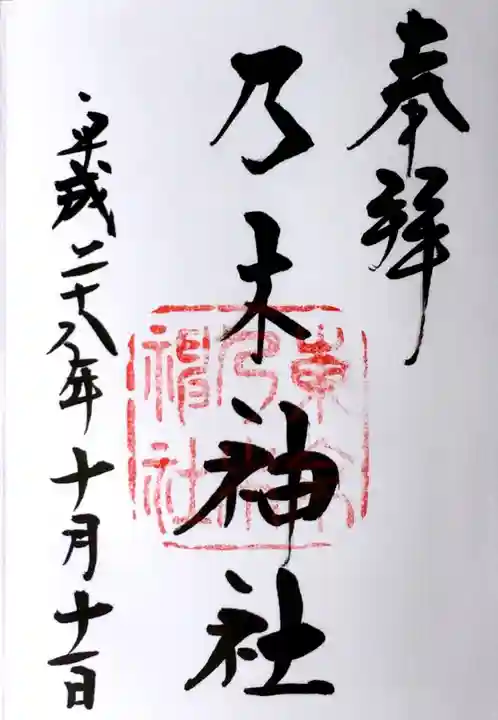 奉拝
乃木神社
平成二十八年十月十一日
東京
乃木
神社